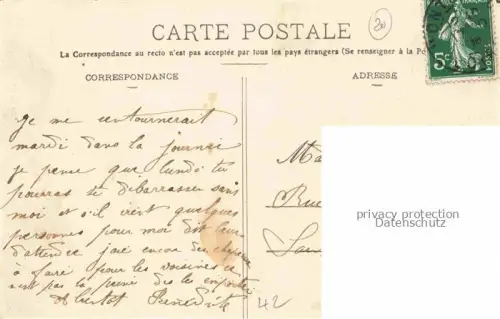 CARTE POSTALE
30
La Correspondance au recto n'est pas acceptée par tous les pays étrangers (Se renseigner à la Po
CORRESPONDANCE
ADRESSE
5c
POSTES
Je me entournerait
mardi dans la journai
je pense que lundi tu
pourras te debarrasser sans
moi et s'il vient quelques
personnes pour moi dit leur
d'atendre jaie encore des
a faire pour les voisines ce
n'est pas la peine des les emporter
a bientot
Ma
Rue
privacy protection
Datenschutz
42